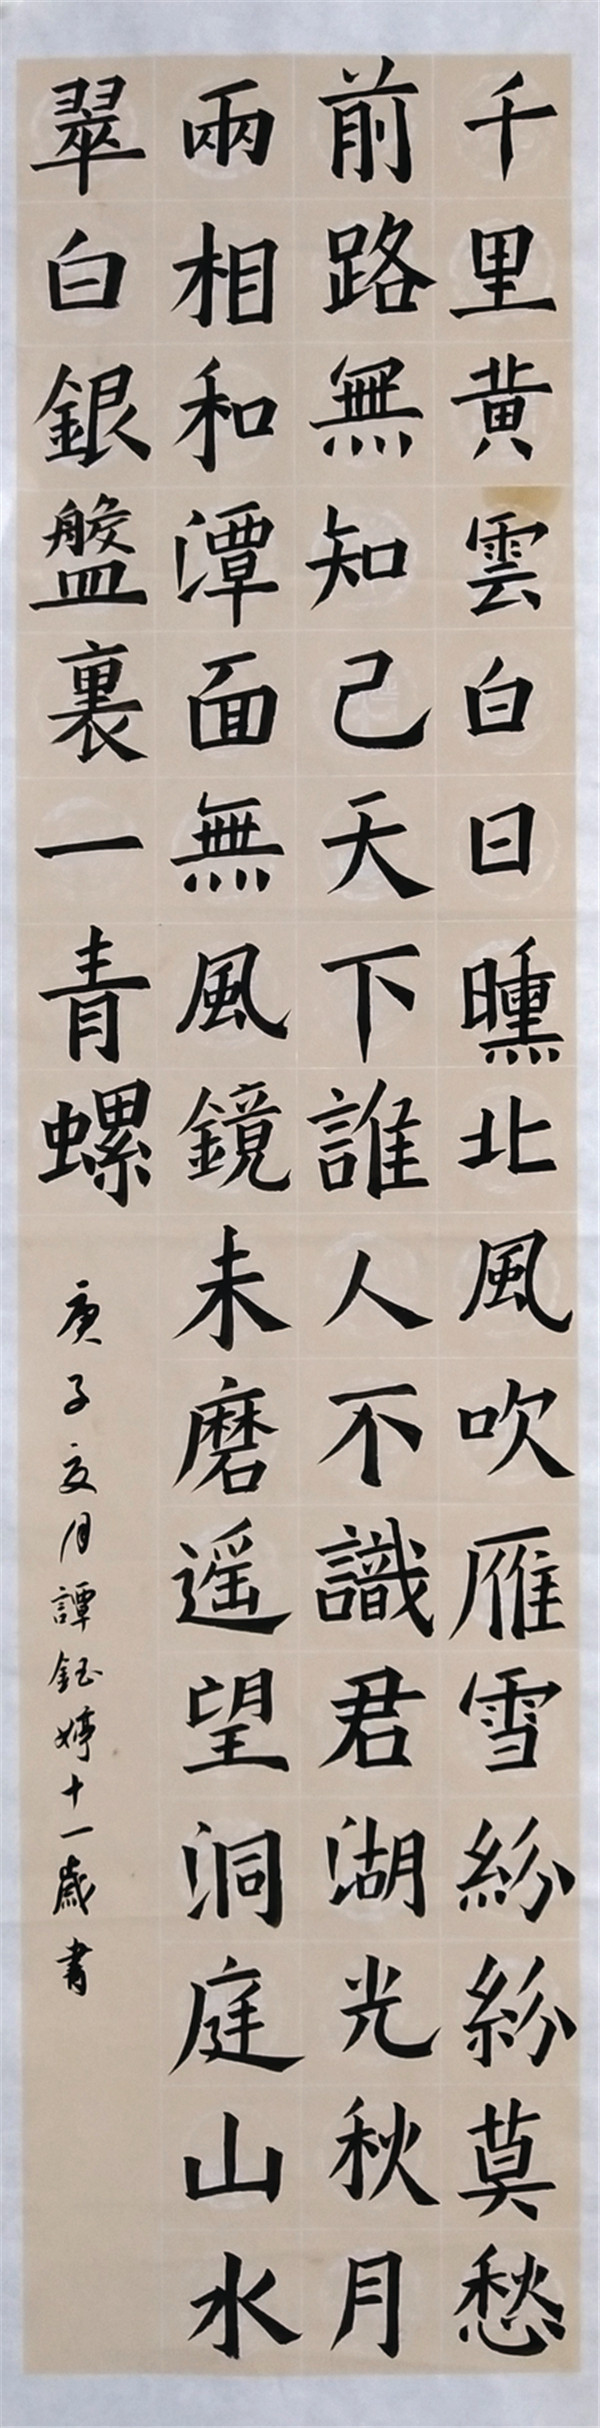 千里黄雲白日曛北風吹雁雪紛紛莫愁
前路無知己天下誰人不識君湖光秋月
兩相和潭面無風鏡未磨遥望洞庭山水
翠白銀盤裏一青螺
庚子夏月譚鈺婷十一歲書